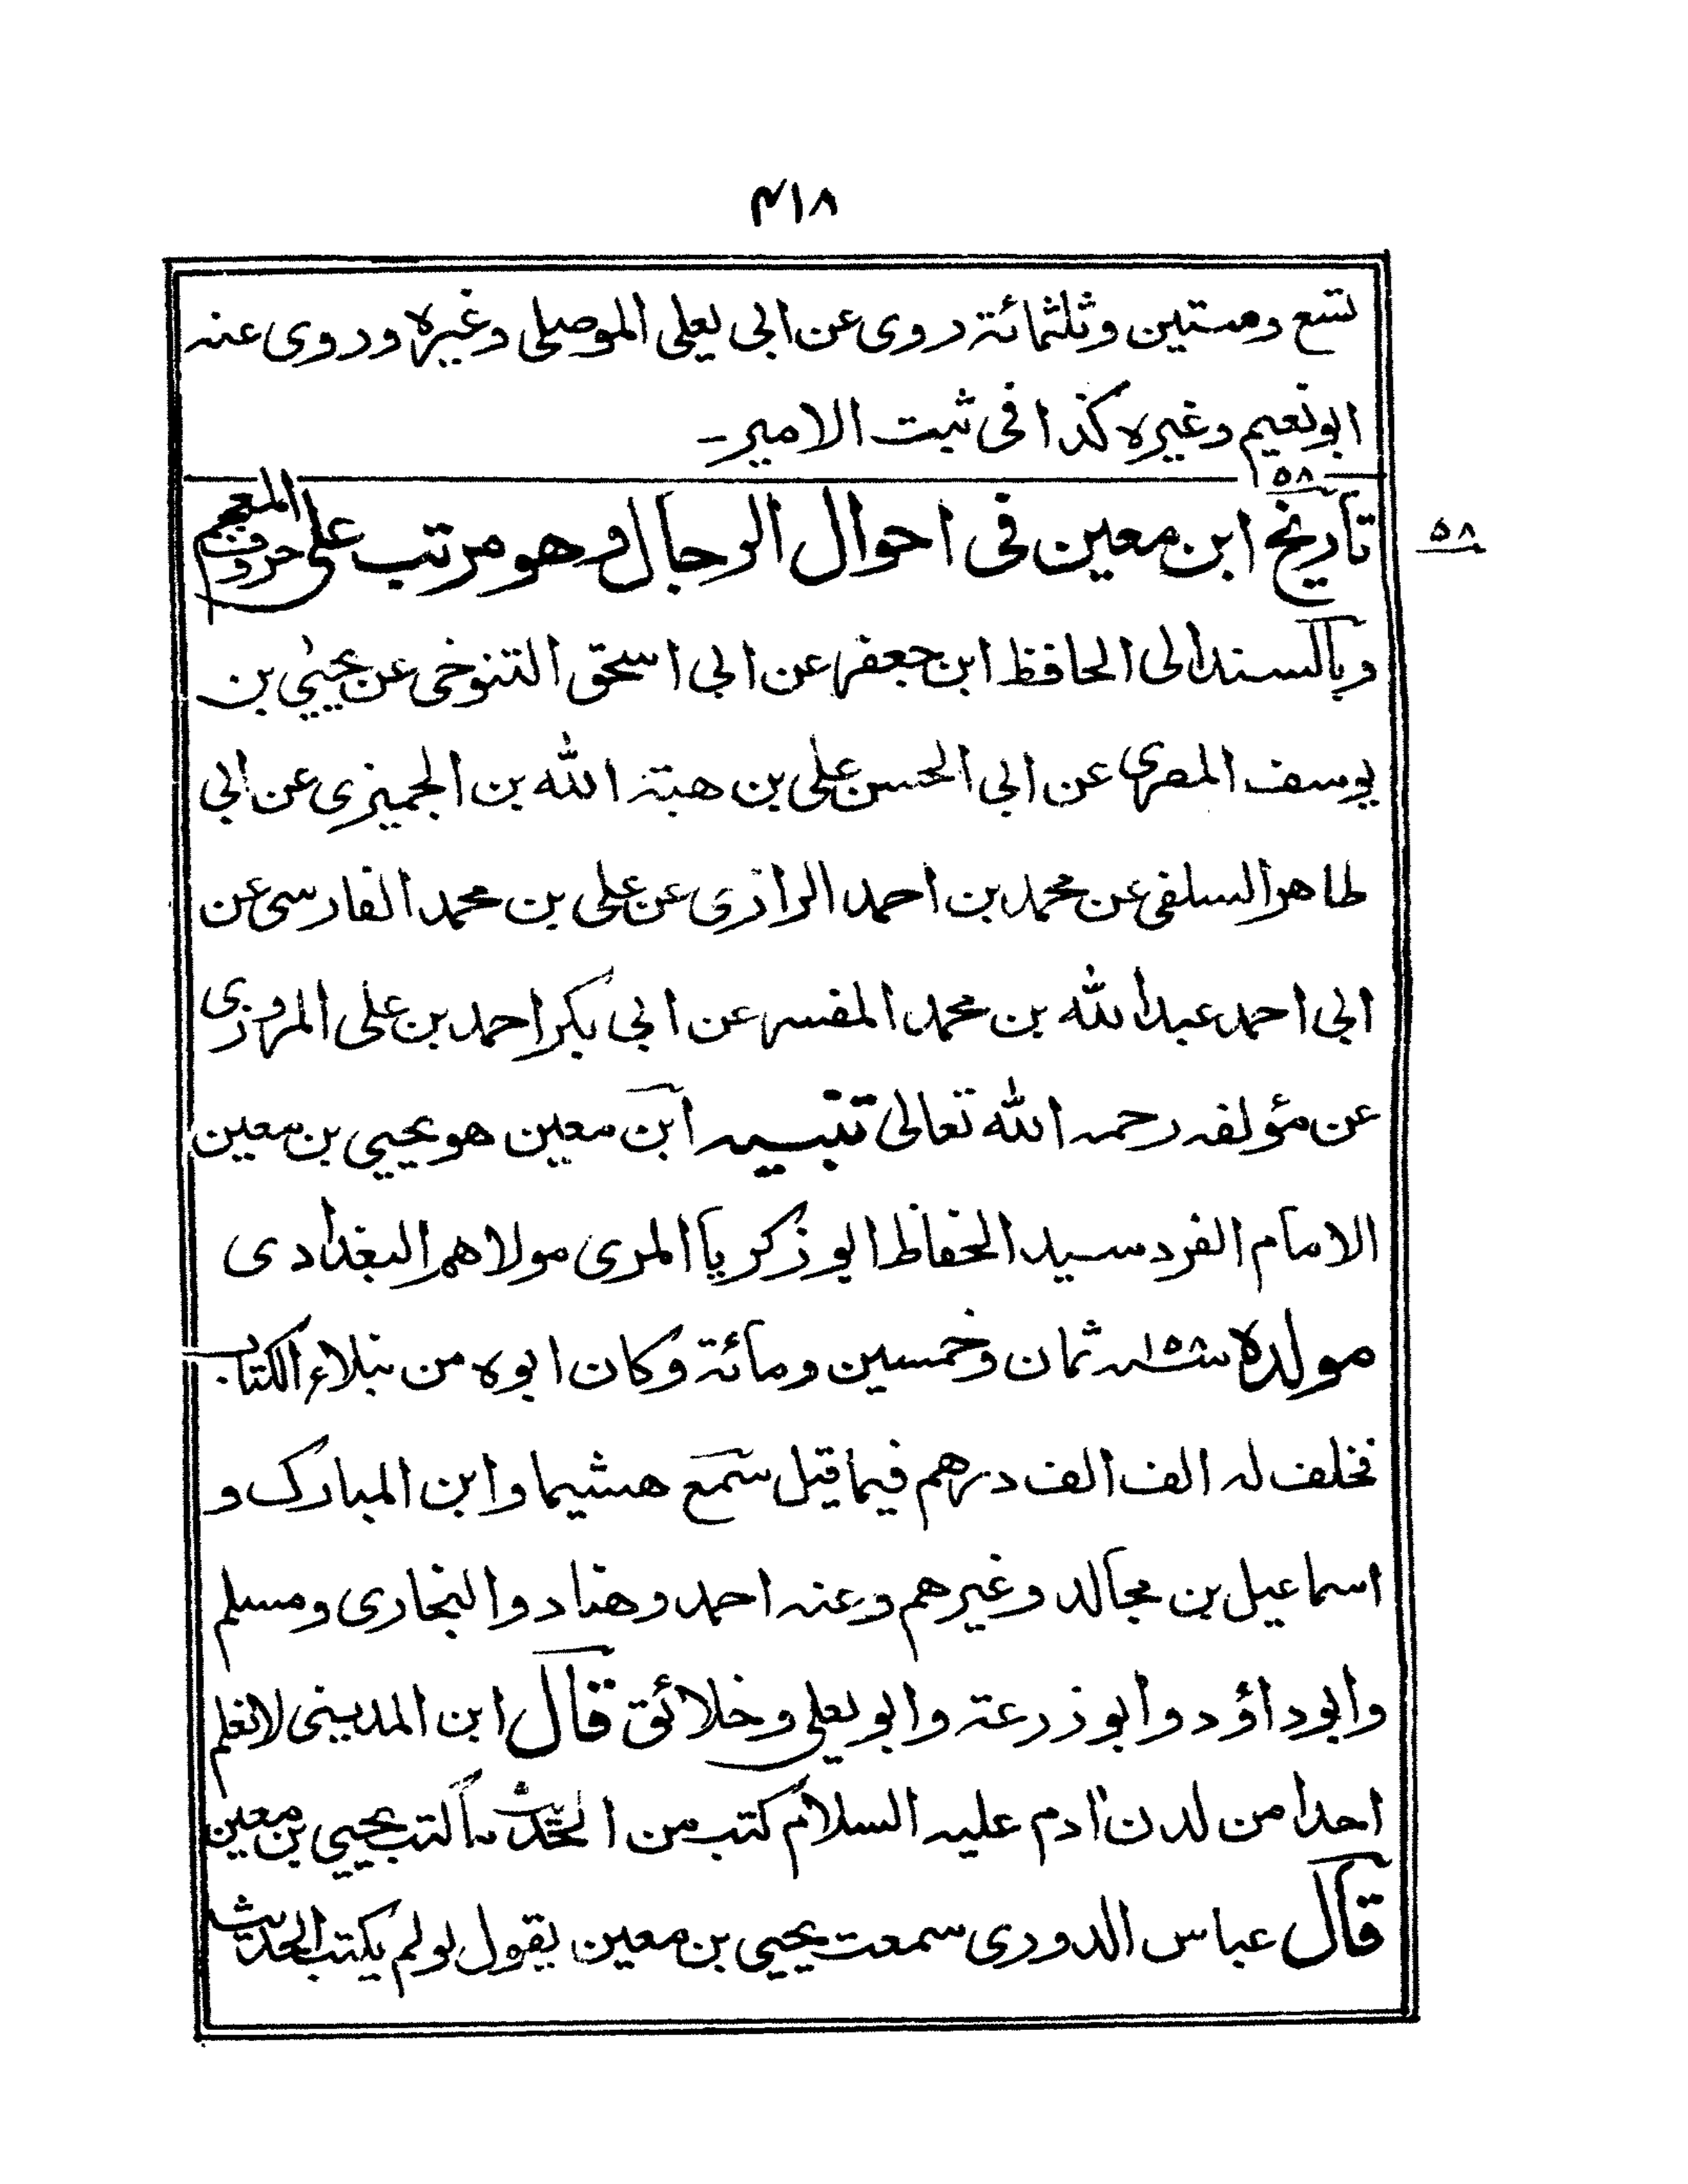 ۴۱۸
تسع وستين وثلثمائة روى عن ابى يعلى الموصلى وغيره وروى عنه
ابونعيم وغيره كذا فى ثبت الامير ـ
۵۸
تأريخ ابن معين فى احوال الرجال وهو مرتب على حروف المعجم
۵۸
وبالسند الى الحافظ ابن جعفر عن ابى اسحق التنوخى عن يحيي بن
يوسف المصرى عن ابى الحسن على بن هبة الله بن الجميزى عن ابى
طاهر السلفى عن محمد بن احمد الرازى عن على بن محمد الفارسى عن
ابى احمد عبد الله بن محمد المفسر عن ابى بكر احمد بن على المروزى
عن مؤلفه رحمه الله تعالى تنبيه ابن معين هو يحيي بن معين
الامام الفرد سيد الحفاظ ابو زكريا المرى مولاهم البغدادى
مولده سنة ۱۵۸ ثمان وخمسين ومائة وكان ابوه من نبلاء الكتاب
فخلف له الف الف درهم فيما قيل سمع هشيما وابن المبارك و
اسماعيل بن مجالد وغيرهم وعنه احمد وهناد والبخارى ومسلم
وابوداؤد وابو زرعة وابو يعلى وخلائق قال ابن المدينى لانعلم
احدا من لدن ادم عليه السلام كتب من الحديث ما كتب يحيي بن معين
قال عباس الدورى سمعت يحيي بن معين يقول لو لم يكتب الحديث